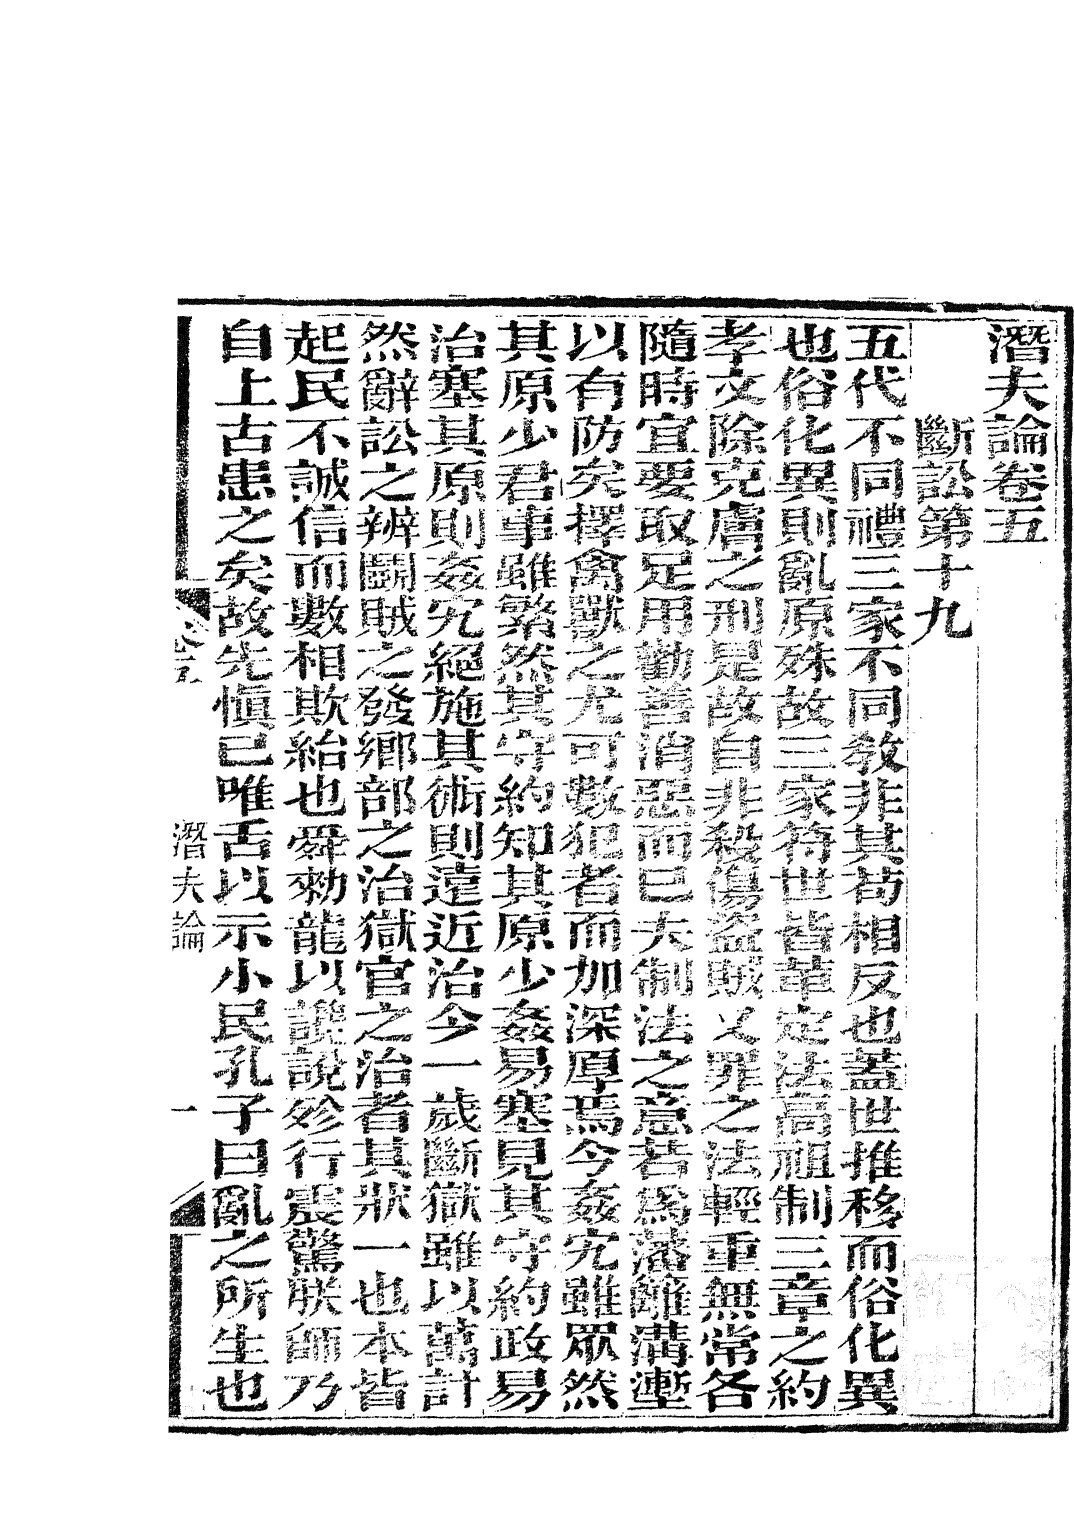 潛夫論卷五
斷訟第十九
五代不同禮三家不同教非其苟相反也蓋世推移而俗化異
也俗化異則亂原殊故三家符世皆革定法高祖制三章之約
孝文除克膚之刑是故自非殺傷盜賊文罪之法輕重無常各
隨時宜要取足用勸善消惡而已夫制法之意若為藩籬溝壍
以有防矣擇禽獸之尤可數犯者而加深厚焉今姦宄雖眾然
其原少君事雖繁然其守約知其原少姦易塞見其守約政易
治塞其原則姦宄絕施其術則遠近治今一歲斷獄雖以萬計
然辭訟之辨鬪賊之發鄉部之治獄官之治者其狀一也本皆
起民不誠信而數相欺紿也舜勑龍以讒說殄行震驚朕師乃
自上古患之矣故先慎己唯舌以示小民孔子曰亂之所生也
卷五
潛夫論
一